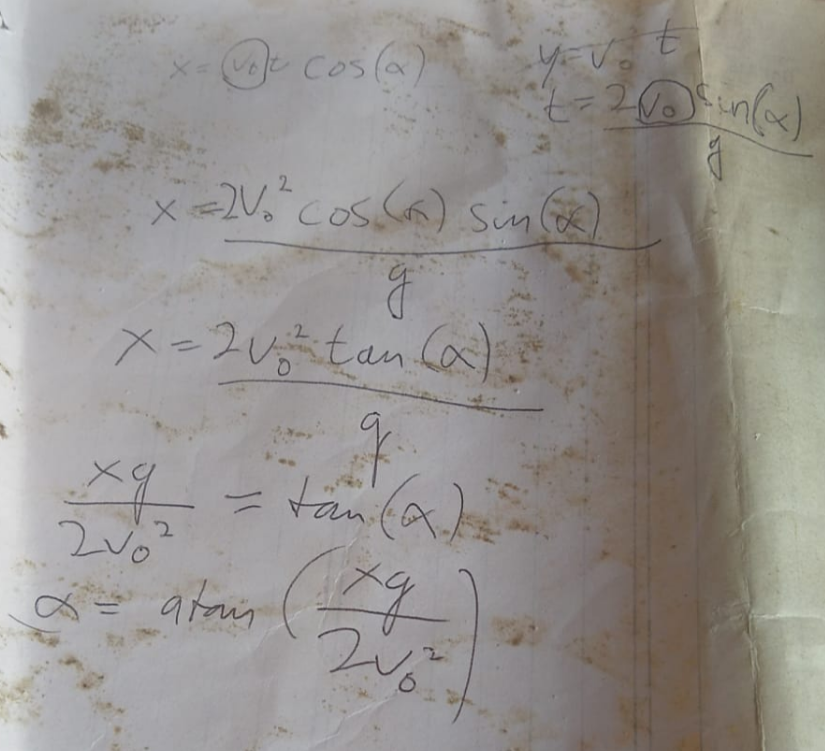 x = v₀t cos(α)
y = v₀ t
t = 2v₀ sin(α) / g
x = 2v₀² cos(α) sin(α) / g
x = 2v₀² tan(α) / g
xg / 2v₀² = tan(α)
α = atan (xg / 2v₀²)